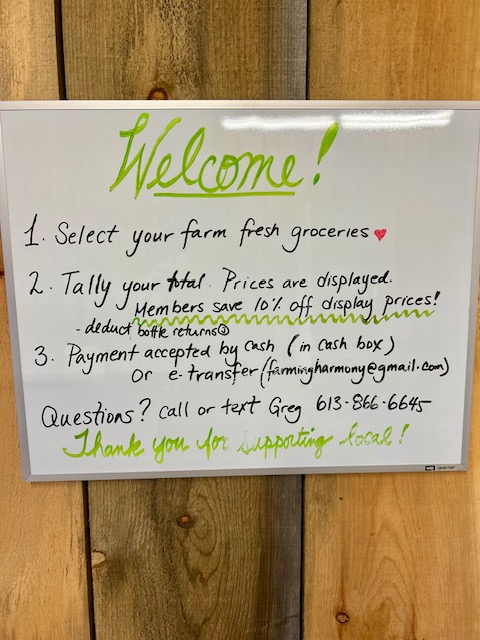 Welcome!
1. Select your farm fresh groceries ♥
2. Tally your total. Prices are displayed.
Members save 10% off display prices!
- deduct bottle returns☺
3. Payment accepted by cash (in cash box)
or e-transfer (farmingharmony@gmail.com)
Questions? call or text Greg 613-866-6645
Thank you for supporting local!
QUARTET